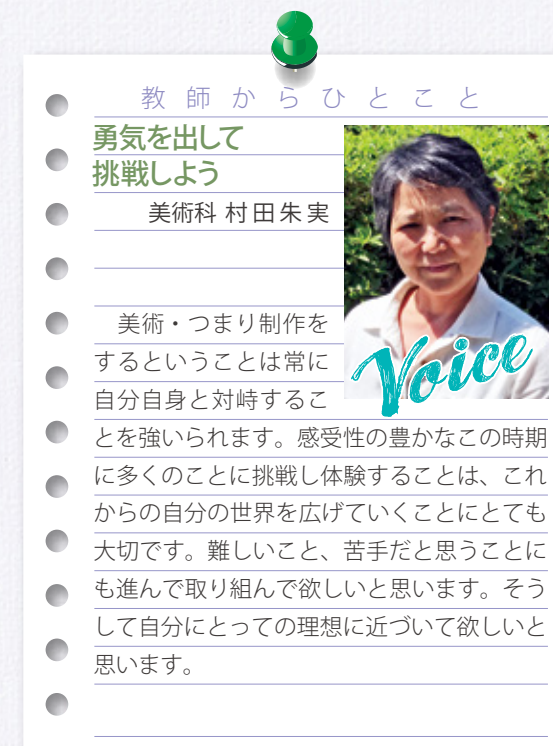 教師からひとこと
勇気を出して
挑戦しよう
美術科 村田朱実
美術・つまり制作を
するということは常に
自分自身と対峙するこ
とを強いられます。感受性の豊かなこの時期
に多くのことに挑戦し体験することは、これ
からの自分の世界を広げていくことにとても
大切です。難しいこと、苦手だと思うことに
も進んで取り組んで欲しいと思います。そう
して自分にとっての理想に近づいて欲しいと
思います。
Voice